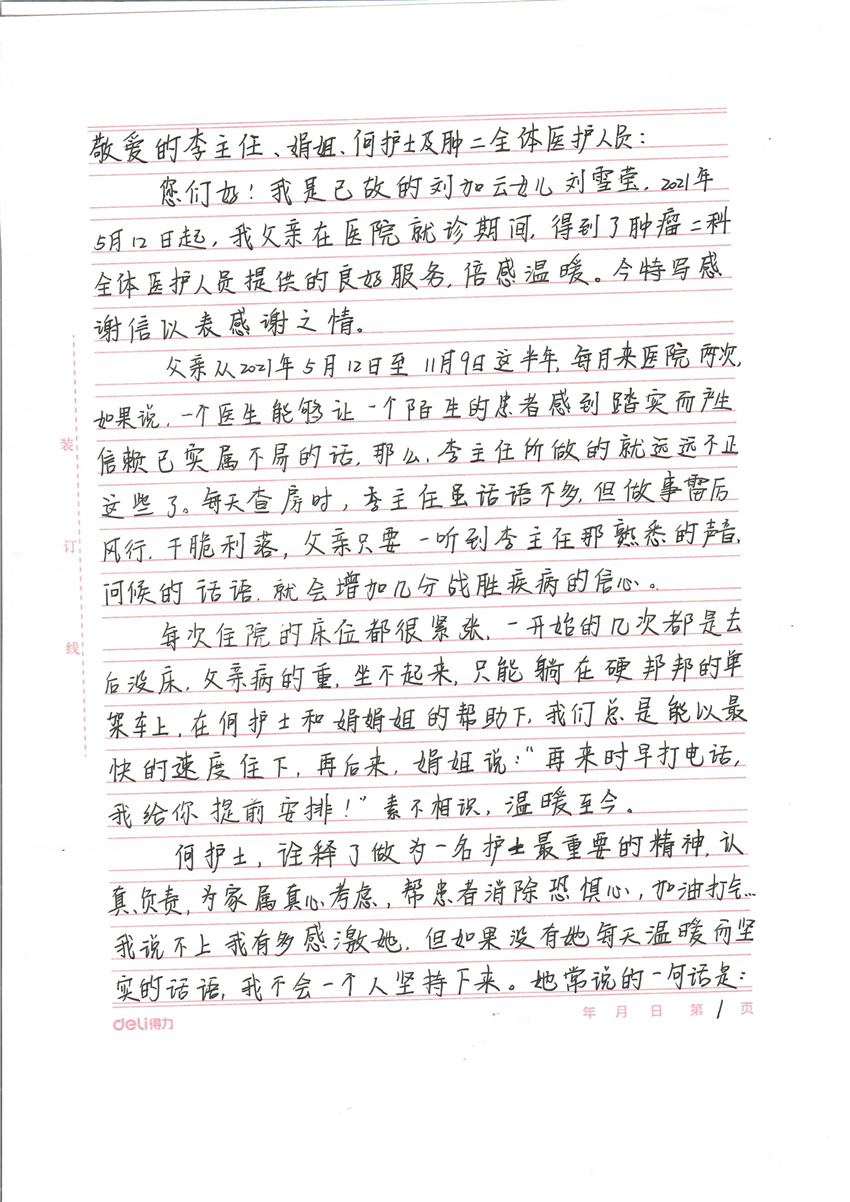 敬爱的李主任、娟姐、何护士及肿二全体医护人员：
您们好！我是已故的刘加云女儿刘雪莹，2021年
5月12日起，我父亲在医院就诊期间，得到了肿瘤二科
全体医护人员提供的良好服务，倍感温暖。今特写感
谢信以表感谢之情。
父亲从2021年5月12日至11月9日这半年，每月来医院两次，
如果说，一个医生能够让一个陌生的患者感到踏实而产生
信赖已实属不易的话，那么，李主任所做的就远远不止
这些了。每天查房时，李主任虽话语不多，但做事雷厉
风行，干脆利落，父亲只要一听到李主任那熟悉的声音，
问候的话语，就会增加几分战胜疾病的信心。
每次住院的床位都很紧张，一开始的几次都是去
后没床，父亲病的重，坐不起来，只能躺在硬邦邦的单
架车上，在何护士和娟娟姐的帮助下，我们总是能以最
快的速度住下，再后来，娟姐说：“再来时早打电话，
我给你提前安排！”素不相识，温暖至今。
何护士，诠释了做为一名护士最重要的精神，认
真、负责，为家属真心考虑，帮患者消除恐惧心，加油打气…
我说不上我有多感激她，但如果没有她每天温暖而坚
实的话语，我不会一个人坚持下来。她常说的一句话是：
装
订
线
deli得力
年 月 日 第 1 页